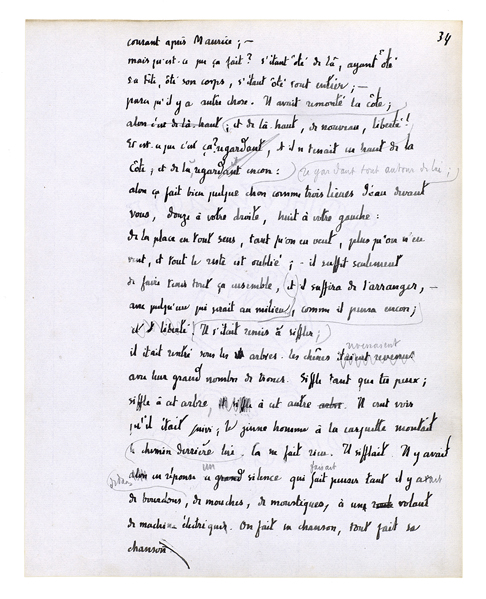 34
courant après Maurice ; —
mais qu'est-ce que ça fait ? s'étant ôté de là, ayant ôté
sa tête, ôté son corps, s'étant ôté tout entier ; —
parce qu'il y a autre chose. Il avait remonté la côte ;
alors c'est de là-haut ; et de là-haut, de nouveau, liberté !
Et est-ce que c'est ça ? regardant, et il venait en haut de la
côte ; et de là regardant encore : regardant tout autour de lui ;
alors ça fait bien quelque chose comme trois lieues d'eau devant
vous, douze à votre droite, huit à votre gauche :
de la place en tout sens, tant qu'on en veut, plus qu'on n'en
veut, et tout le reste est oublié ; - il suffit seulement
de faire tenir tout ça ensemble, et il suffira de l'arranger, —
avec quelqu'un qui serait au milieu, comme il pensa encore ;
et liberté ! Il s'était remis à siffler ;
revenaient
il était rentré sous les arbres. Les chênes étaient revenus
avec leur grand nombre de troncs. Siffle tant que tu peux ;
siffle à cet arbre, siffle à cet autre arbre. Il crut voir
qu'il était suivi ; le jeune homme à la casquette montait
le chemin derrière lui. Ça ne fait rien. Il sifflait. Il y avait
un faisant
alors en réponse un grand silence qui fait penser tant il y avait
de bourdons, de mouches, de moustiques, à un volant
de machine électrique. On fait sa chanson, tout fait sa
chanson